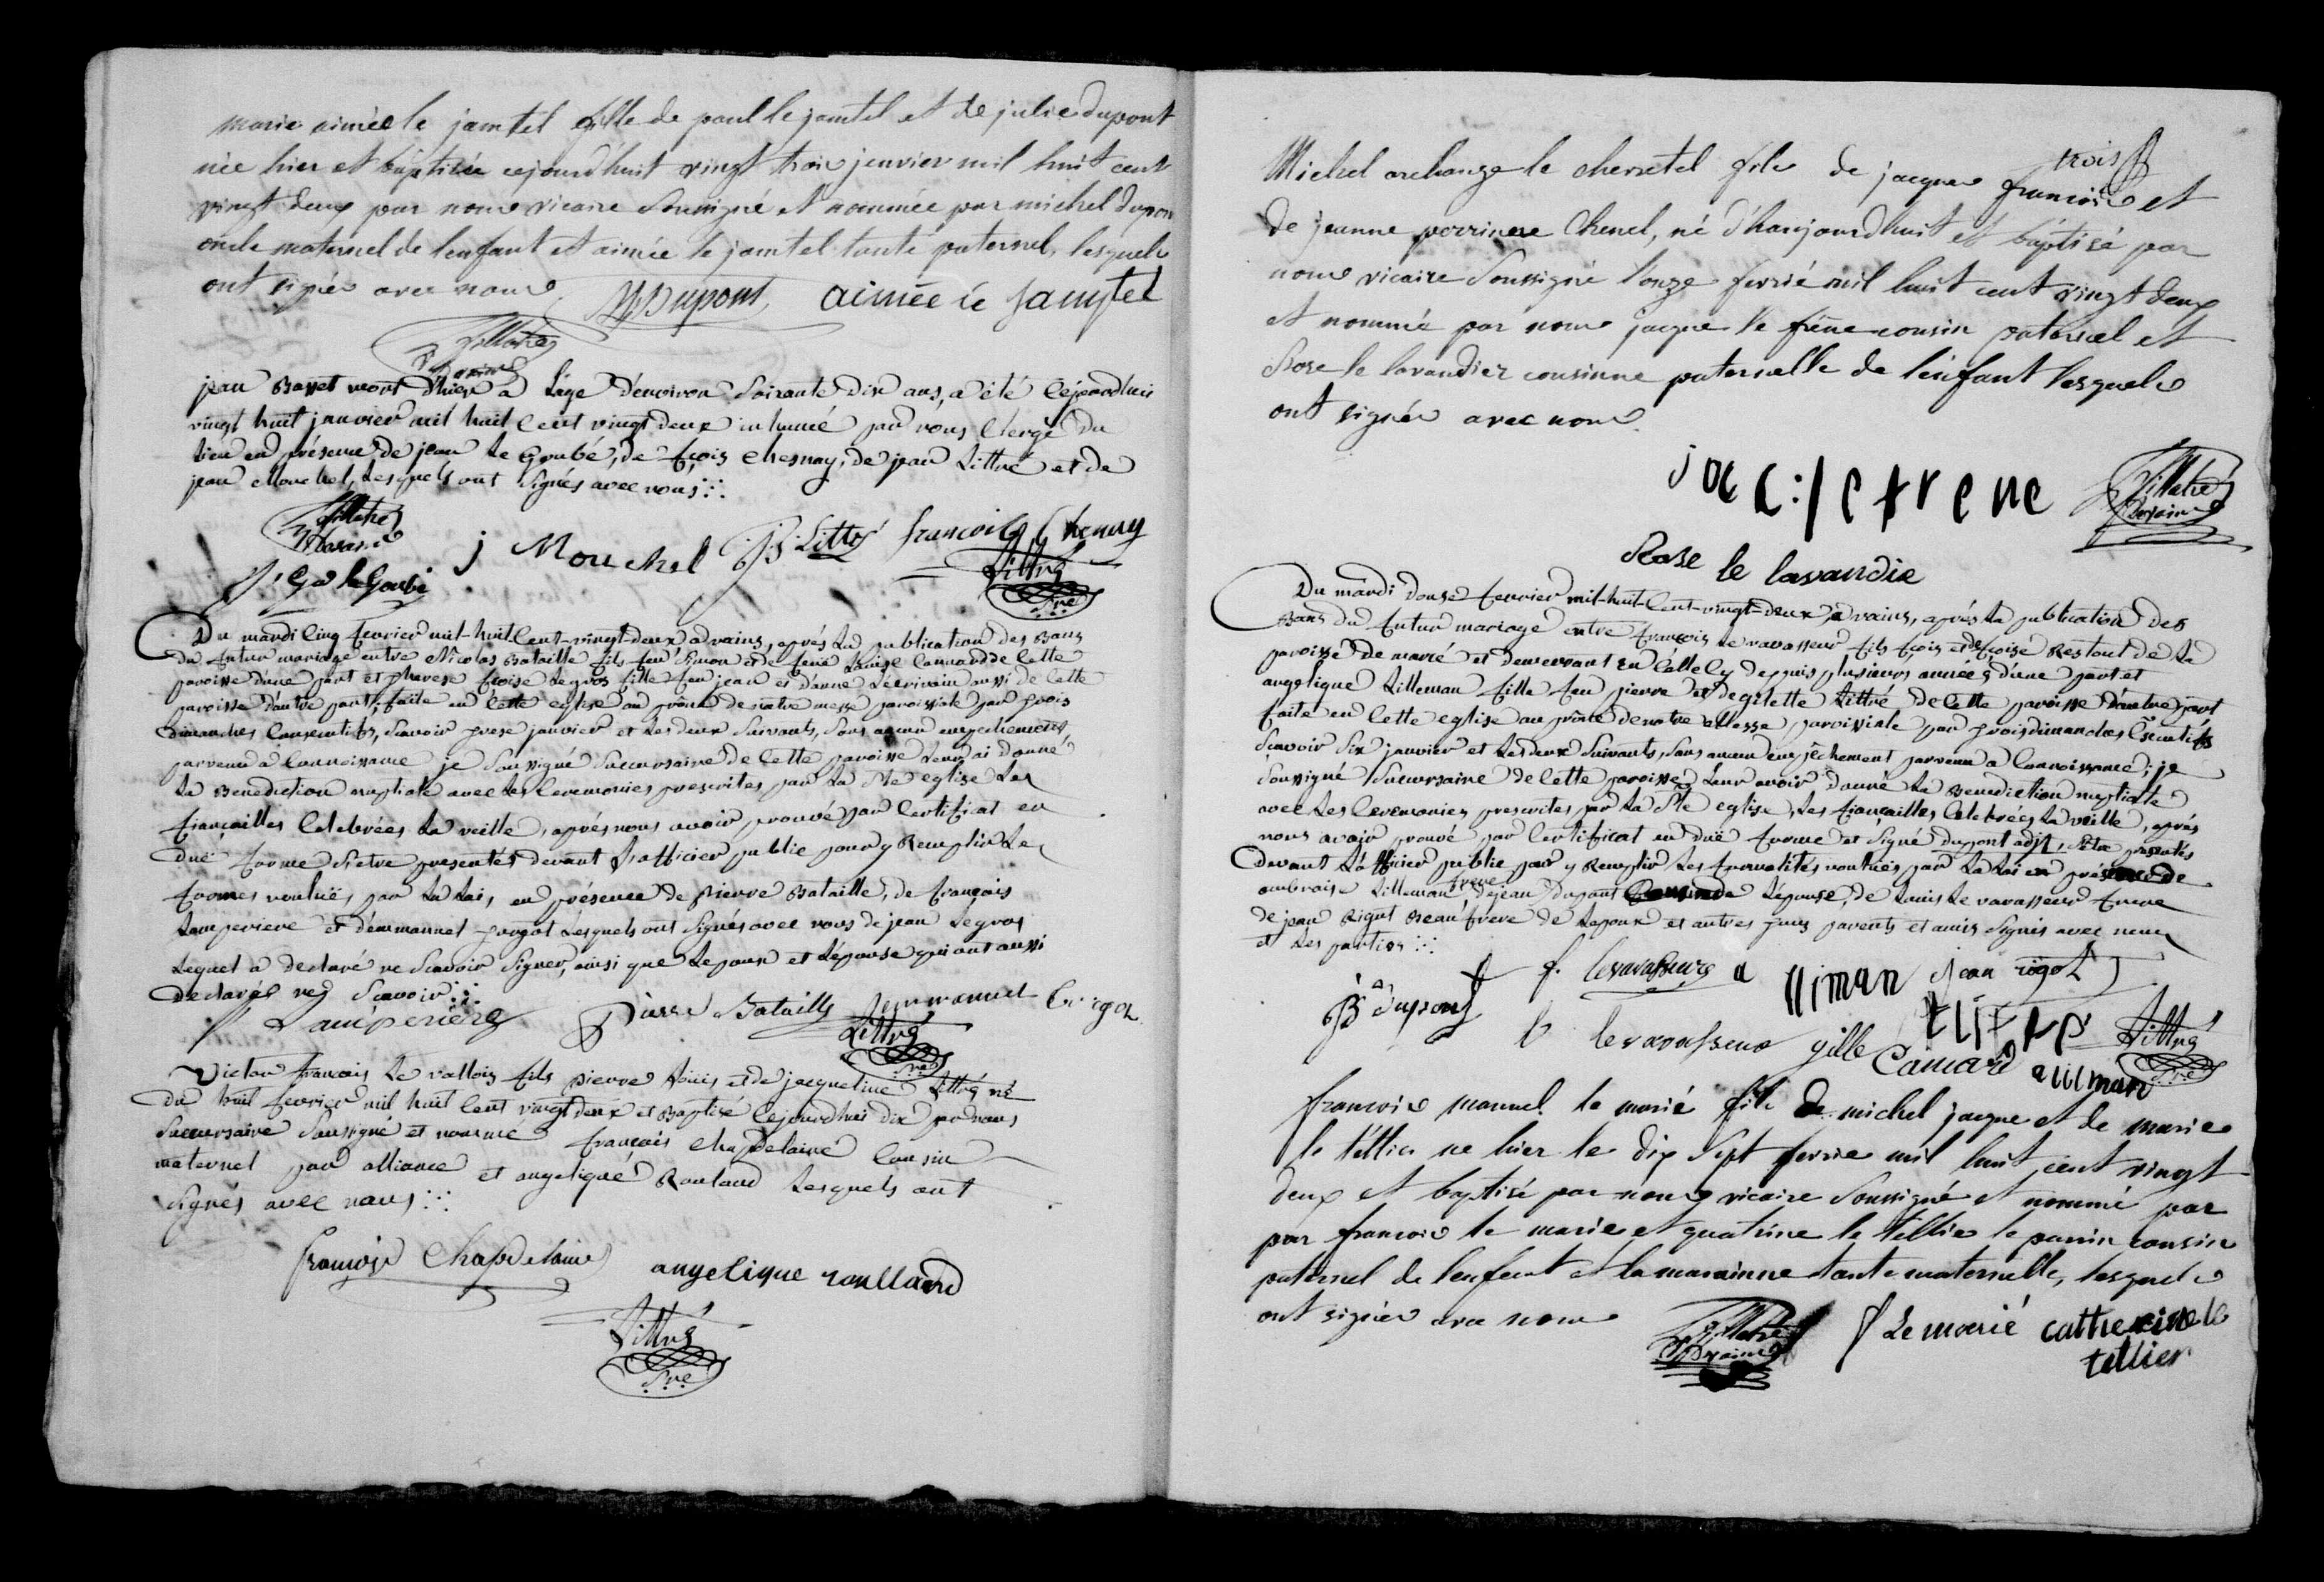 marie aimée le jamtel fille de paul le jamtel et de julie dupont
née hier et baptisée cejourdhuit vingt trois jenvier mil huit cent
vingt deux par nous vicaire soussigné et nommée par michel dupon
oncle maternel de lenfant et aimée le jamtel tante paternel, lesquels
ont signée avec nous
M Dupont aimée le Jamtel
jean Basset mort d'hier a l'age d'environ soixante dix ans, a été cejourdhui
vingt huit janvier mil huit cent vingt deux inhumé par nous clergé du
lieu en présence de jean le Goubé, de fçois chesnay, de jean Littré et de
jean Mouchel, lesquels ont signés avec nous
j Mouchel Littré francois Chenay
le Goubé
Littré
sre
Du mardi cinq fevrier mil-huit-cent-vingt-deux a vains, aprés la publication des Bans
du futur mariage entre Nicolas Bataille fils feu Simon et de feue Louise Camard de cette
paroisse d'une part et therese fcoise Legros fille feu jean et d'anne Lécrivain aussi de cette
paroisse d'autre part, faite en cette eglise au prone de notre messe paroissiale par trois
dimanches consecutifs, scavoir treze janvier et les deux suivants, sans aucun empechement
parvenu a connoissance je soussigné succursaire de cette paroisse leur ai donné
la Benediction nuptiale avec les ceremonies prescrites par la Ste eglise les
fiancailles celebrées la veille, aprés nous avoir prouvé par certificat en
duë forme d'etre presentés devant l'officier public pour y Remplir les
formes vouluës par la loi, en présence de pierre Bataille, de françois
Lamperiere et d'emmanuel gorgot lesquels ont signés avec nous de jean Legros
lequel a declaré ne scavoir signer, ainsi que l'epoux et l'épouse qui ont aussi
declarés ne scavoir
f Lamperiere Pierre Bataille emmanuel Gorgot
Littré
sre
Victor francois le vallois fils pierre Louis et de jacqueline Littré né
du huit fevrier mil huit cent vingt deux et Baptisé cejourdhui dix par nous
succursaire soussigné et nommé françois chapdelaine cousin
maternel par alliance et angelique Roulaud lesquels ont
signés avec nous
françois Chapdelaine angelique roullaud
Littré
sre
trois
Michel archange le cherretel fils de jacque francois et
de jeanne perrinne Chenel, né d'haujourdhuit et baptisé par
nous vicaire soussigné l'onze fevrié mil huit cent vingt deux
et nommé par nous jacque le frêne cousin paternel et
Rose le lavandier cousinne paternelle de l'enfant lesquels
ont signée avec nous
jac: lefrene
Rose le lavandie
Du mardi douze fevrier mil-huit-cent-vingt-deux a vains, aprés la publication des
Bans du futur mariage entre françois le vavasseur fils fçois et de fçoise Restout de la
paroisse de marcé et demeurant en celle cy depuis plusieurs années d'une part et
angelique Lilleman fille feu pierre et de gilette Littré de cette paroisse d'autre part
faite en cette eglise au prône de notre Messe paroissiale par trois dimanches
scavoir six janvier et les deux suivants, sans aucun empêchement parvenu a connoissance; je
soussigné succursaire de cette paroisse leur avoir donné la Benediction nuptiale
avec les ceremonies prescrites par la Ste eglise, les fiançailles celebrées la veille, aprés
nous avoir prouvé par certificat en duë forme et signé dupont adjt. s'etre presentés
devant l'officier public pour y Remplir les formalités vouluës par la loi en présence de
ambroise Lilleman frere de jean dupont de l'épouse, de Louis le vavasseur frere
de jean Rigot Beau frere de l'epoux et autres parents et amis signés avec nous
et les parties
f. levavasseur jean rigot
dupont
l levavasseur gille Camard
Littré
sre
francois manuel le marié fils de michel jacque et de marie
le téllier ne hier le dix sept fevrie mil huit cent vingt
deux et baptisé par nous vicaire soussigné et nommé par
par francois le marie et quatrine le téllie le parrin cousin
paternel de lenfant et la marainne tante maternelle, lesquels
ont signée avec nous
f Le marié cattherine le
tellier